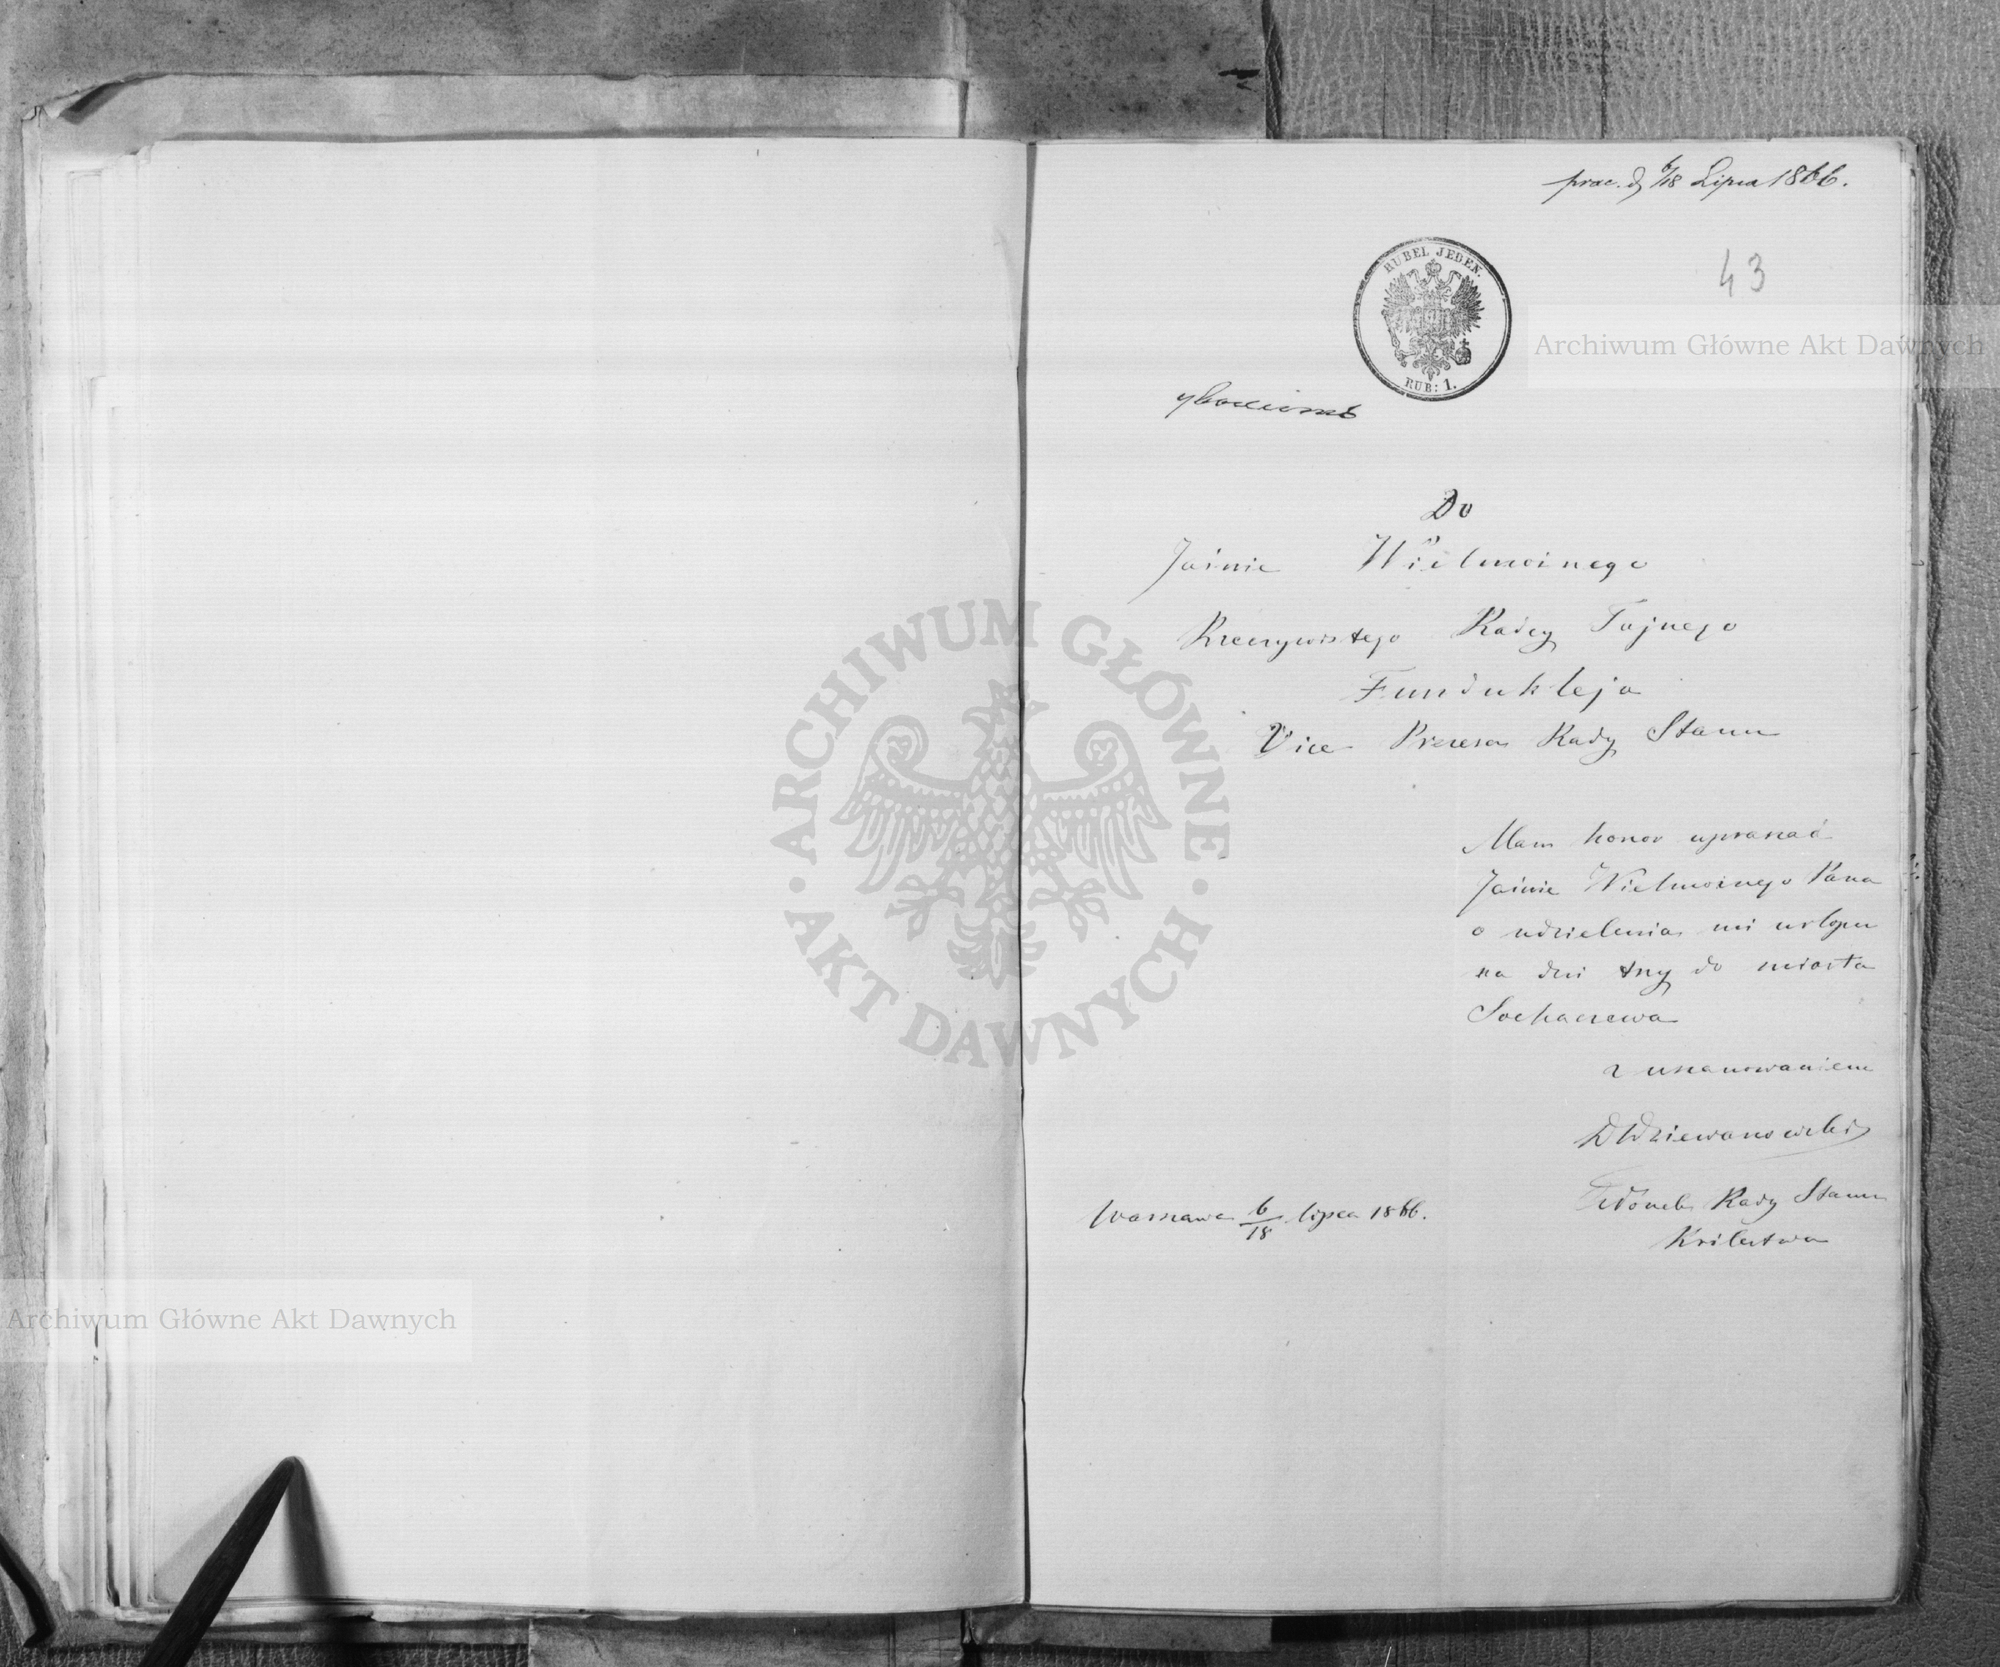 prae. d 6/18 Lipca 1866.
43
RUBEL JEDEN.
RUB: 1.
Do
Jaśnie Wielmożnego
Rzeczywistego Radcy Tajnego
Fundukleja
Vice Prezesa Rady Stanu
Mam honor upraszać
Jaśnie Wielmożnego Pana
o udzielenia mi urlopu
na dni trzy do miasta
Sochaczewa
z uszanowaniem
Dziewanowski
Członek Rady Stanu
Królestwa
Warszawa 6/18 lipca 1866.
Archiwum Główne Akt Dawnych
ARCHIWUM GŁÓWNE AKT DAWNYCH
Archiwum Główne Akt Dawnych